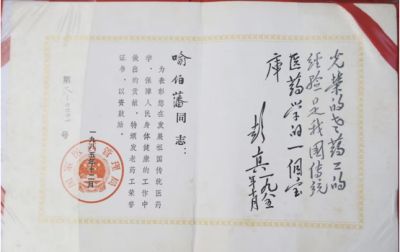 光荣的老药工的
经验是我国传统
医药学的一个宝
库
彭真
喻伯藩同志：
为表彰您在发展祖国传统医药
学、保障人民身体健康的工作中
做出的贡献，特颁发老药工荣誉
证书，以资鼓励。
一九八五年十二月